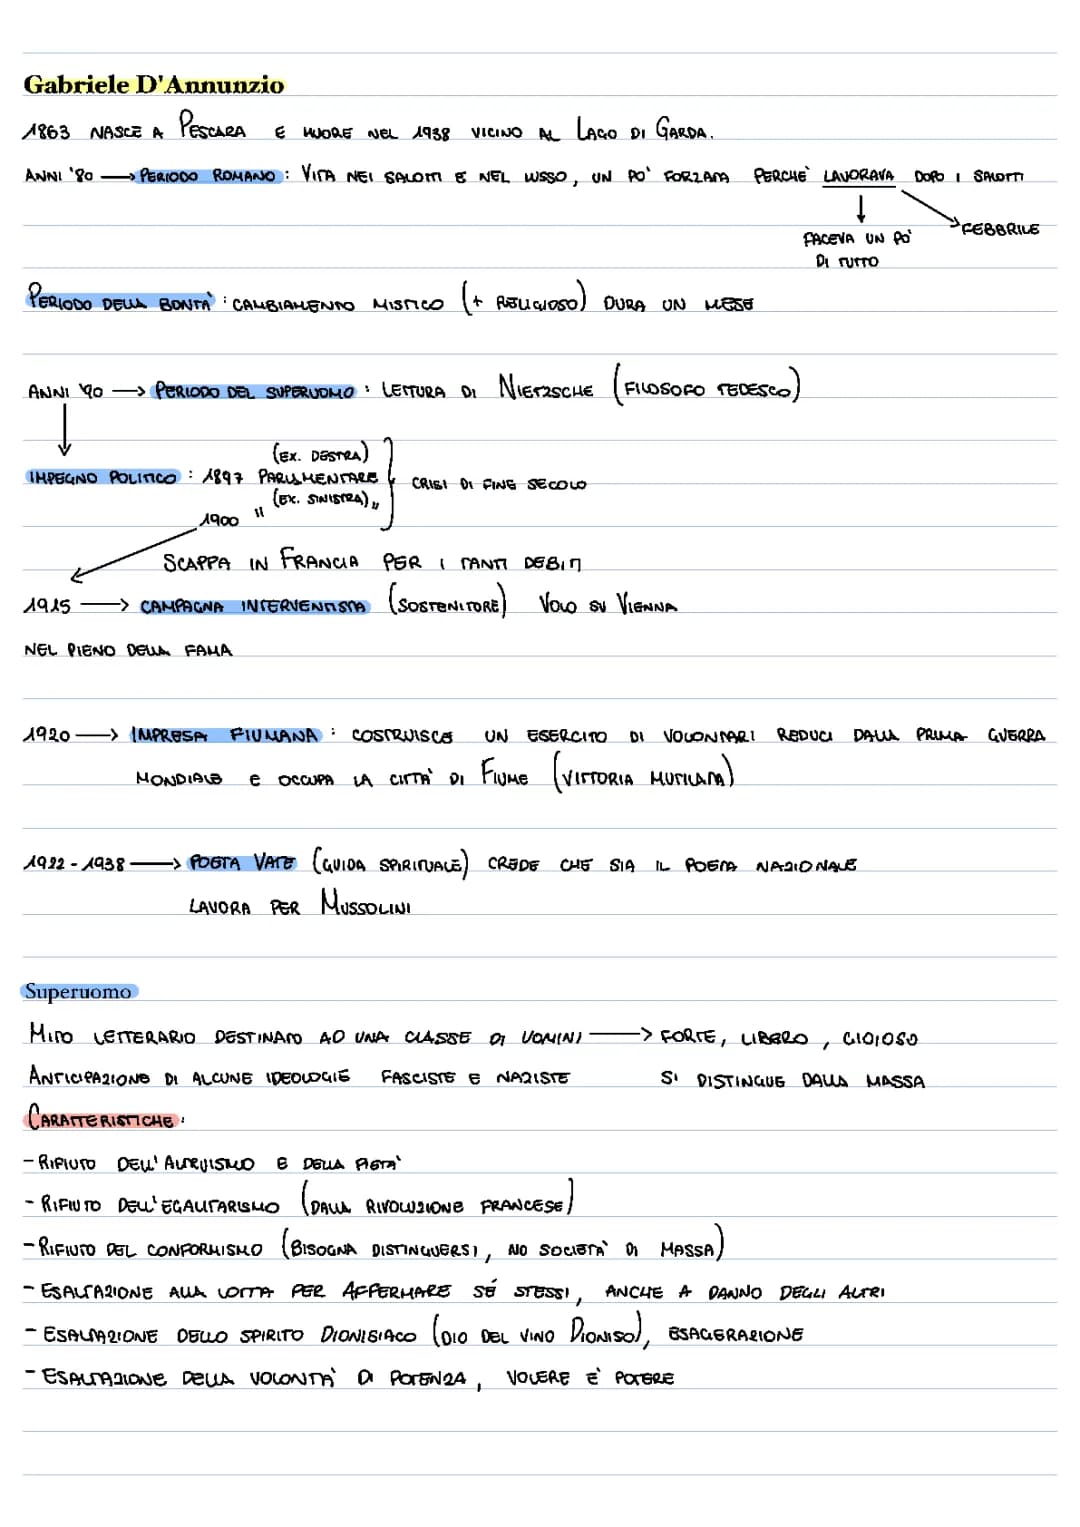 Gabriele D'Annunzio
1863 NASCE A PESCARA E MUORE NEL 1938 VICINO AL LAGO DI GARDA.
ANNI '80 → PERIODO ROMANO : VITA NEI SALOTTI E NEL LUSSO, UN PO' FORZATA PERCHÈ LAVORAVA DOPO I SALOTTI
FEBBRILE
FACEVA UN PO'
DI TUTTO
PERIODO DELLA BONTÀ : CAMBIAMENTO MISTICO (+ RELIGIOSO) DURA UN MESE
ANNI '90 → PERIODO DEL SUPERUOMO : LETTURA DI NIETZSCHE (FILOSOFO TEDESCO)
(EX. DESTRA)
IMPEGNO POLITICO : 1897 PARLAMENTARE
CRISI DI FINE SECOLO
(EX. SINISTRA)
1900 " "
SCAPPA IN FRANCIA PER I TANTI DEBITI
1915 → CAMPAGNA INTERVENTISTA (SOSTENITORE) VOLO SU VIENNA
NEL PIENO DELLA FAMA
1920 → IMPRESA FIUMANA : COSTRUISCE UN ESERCITO DI VOLONTARI REDUCI DALLA PRIMA GUERRA
MONDIALE E OCCUPA LA CITTÀ DI FIUME (VITTORIA MUTILATA)
1922 - 1938 → POETA VATE (GUIDA SPIRITUALE) CREDE CHE SIA IL POETA NAZIONALE
LAVORA PER MUSSOLINI
Superuomo
MITO LETTERARIO DESTINATO AD UNA CLASSE DI UOMINI → FORTE, LIBERO, GIOIOSO
ANTICIPAZIONE DI ALCUNE IDEOLOGIE FASCISTE E NAZISTE SI DISTINGUE DALLA MASSA
CARATTERISTICHE :
- RIFIUTO DELL'ALTRUISMO E DELLA PIETÀ
- RIFIUTO DELL'EGALITARISMO (DALLA RIVOLUZIONE FRANCESE)
- RIFIUTO DEL CONFORMISMO (BISOGNA DISTINGUERSI, NO SOCIETÀ DI MASSA)
- ESALTAZIONE ALLA LOTTA PER AFFERMARE SÉ STESSI, ANCHE A DANNO DEGLI ALTRI
- ESALTAZIONE DELLO SPIRITO DIONISIACO (DIO DEL VINO DIONISO), ESAGERAZIONE
- ESALTAZIONE DELLA VOLONTÀ DI POTENZA, VOLERE È POTERE